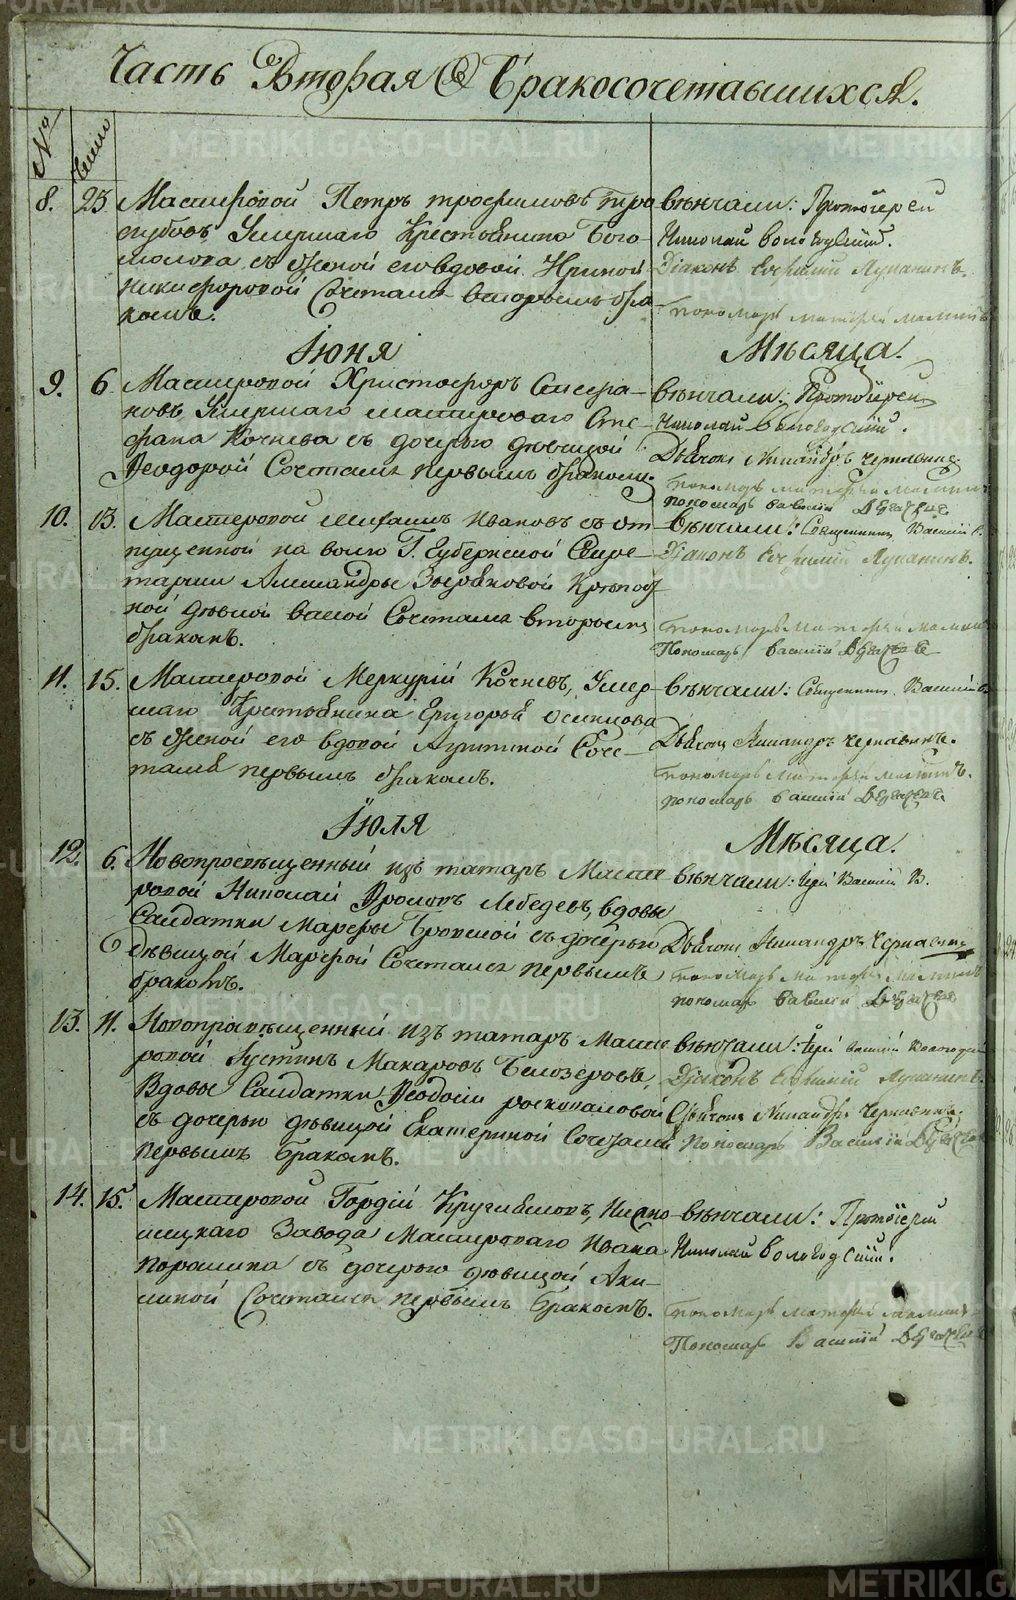 Часть Вторая О Бракосочетавшихся.
№
Число
8. 23. Мастеровой Петръ трофимовъ
Умершаго Крестьянина Бого-
молова съ женой его вдовой Ириной
никифоровой Сочетался вторымъ бра-
комъ.
вѣнчали: Протоіерей
Николай вологодскій.
Діаконъ Евфимій Лупанинъ.
пономарь матфей
Іюня
Мѣсяца.
9. 6 Мастеровой Христофоръ
Умершаго мастероваго Сте-
фана Кочнева съ дочерью дѣвицой
Феодорой Сочетался первымъ бракомъ.
вѣнчали: Протоіерей
Николай вологодскій.
Дьячокъ Никандръ Чернавинъ
пономарь матфей
пономарь василій
10. 13. Мастеровой Иванъ съ от-
пущенной на волю Г. Губернской Секре-
тарши Александры Зыряновой Крѣпост
ной дѣвкой Сочетался вторымъ
бракомъ.
вѣнчали: Священникъ Василій В.
Діаконъ Евфимій Лупанинъ.
пономарь матфей
Пономарь василій
11. 15. Мастеровой Меркурій Кочневъ, Умер-
шаго Крестьянина Григорья осинцова
съ женой его вдовой Соче-
тался первымъ бракомъ.
вѣнчали: Священникъ Василій В.
Дьячокъ Никандръ Чернавинъ.
пономарь матфей
пономарь василій
Іюля
Мѣсяца.
12. 6. Новопросвѣщенный изъ татаръ Масте
ровой Николай Фроловъ Лебедевъ, вдовы
Салдатки Марфы съ дочерью
дѣвицой Марфой Сочетался первымъ
бракомъ.
вѣнчали: Іерей Василій В.
Дьячокъ Никандръ Чернавинъ
пономарь матфей
пономарь василій
13. 11. Новопросвѣщенный изъ татаръ Масте
ровой Іустинъ Макаровъ Белозеровъ,
Вдовы Салдатки Феодосіи
съ дочерью дѣвицой Екатериной Сочетался
первымъ Бракомъ.
вѣнчали: Іерей василій вологодскій
Діаконъ Евфимій Лупанинъ.
Дьячокъ Никандръ Чернавинъ.
Пономарь Василій
14. 15. Мастеровой Гордій
Завода Мастероваго Ивана
Порошина съ дочерью дѣвицой Аки-
линой Сочетался первымъ Бракомъ.
вѣнчали: Протоіерей
Николай вологодскій.
пономарь матфей
Пономарь Василій
METRIKI.GASO-URAL.RU